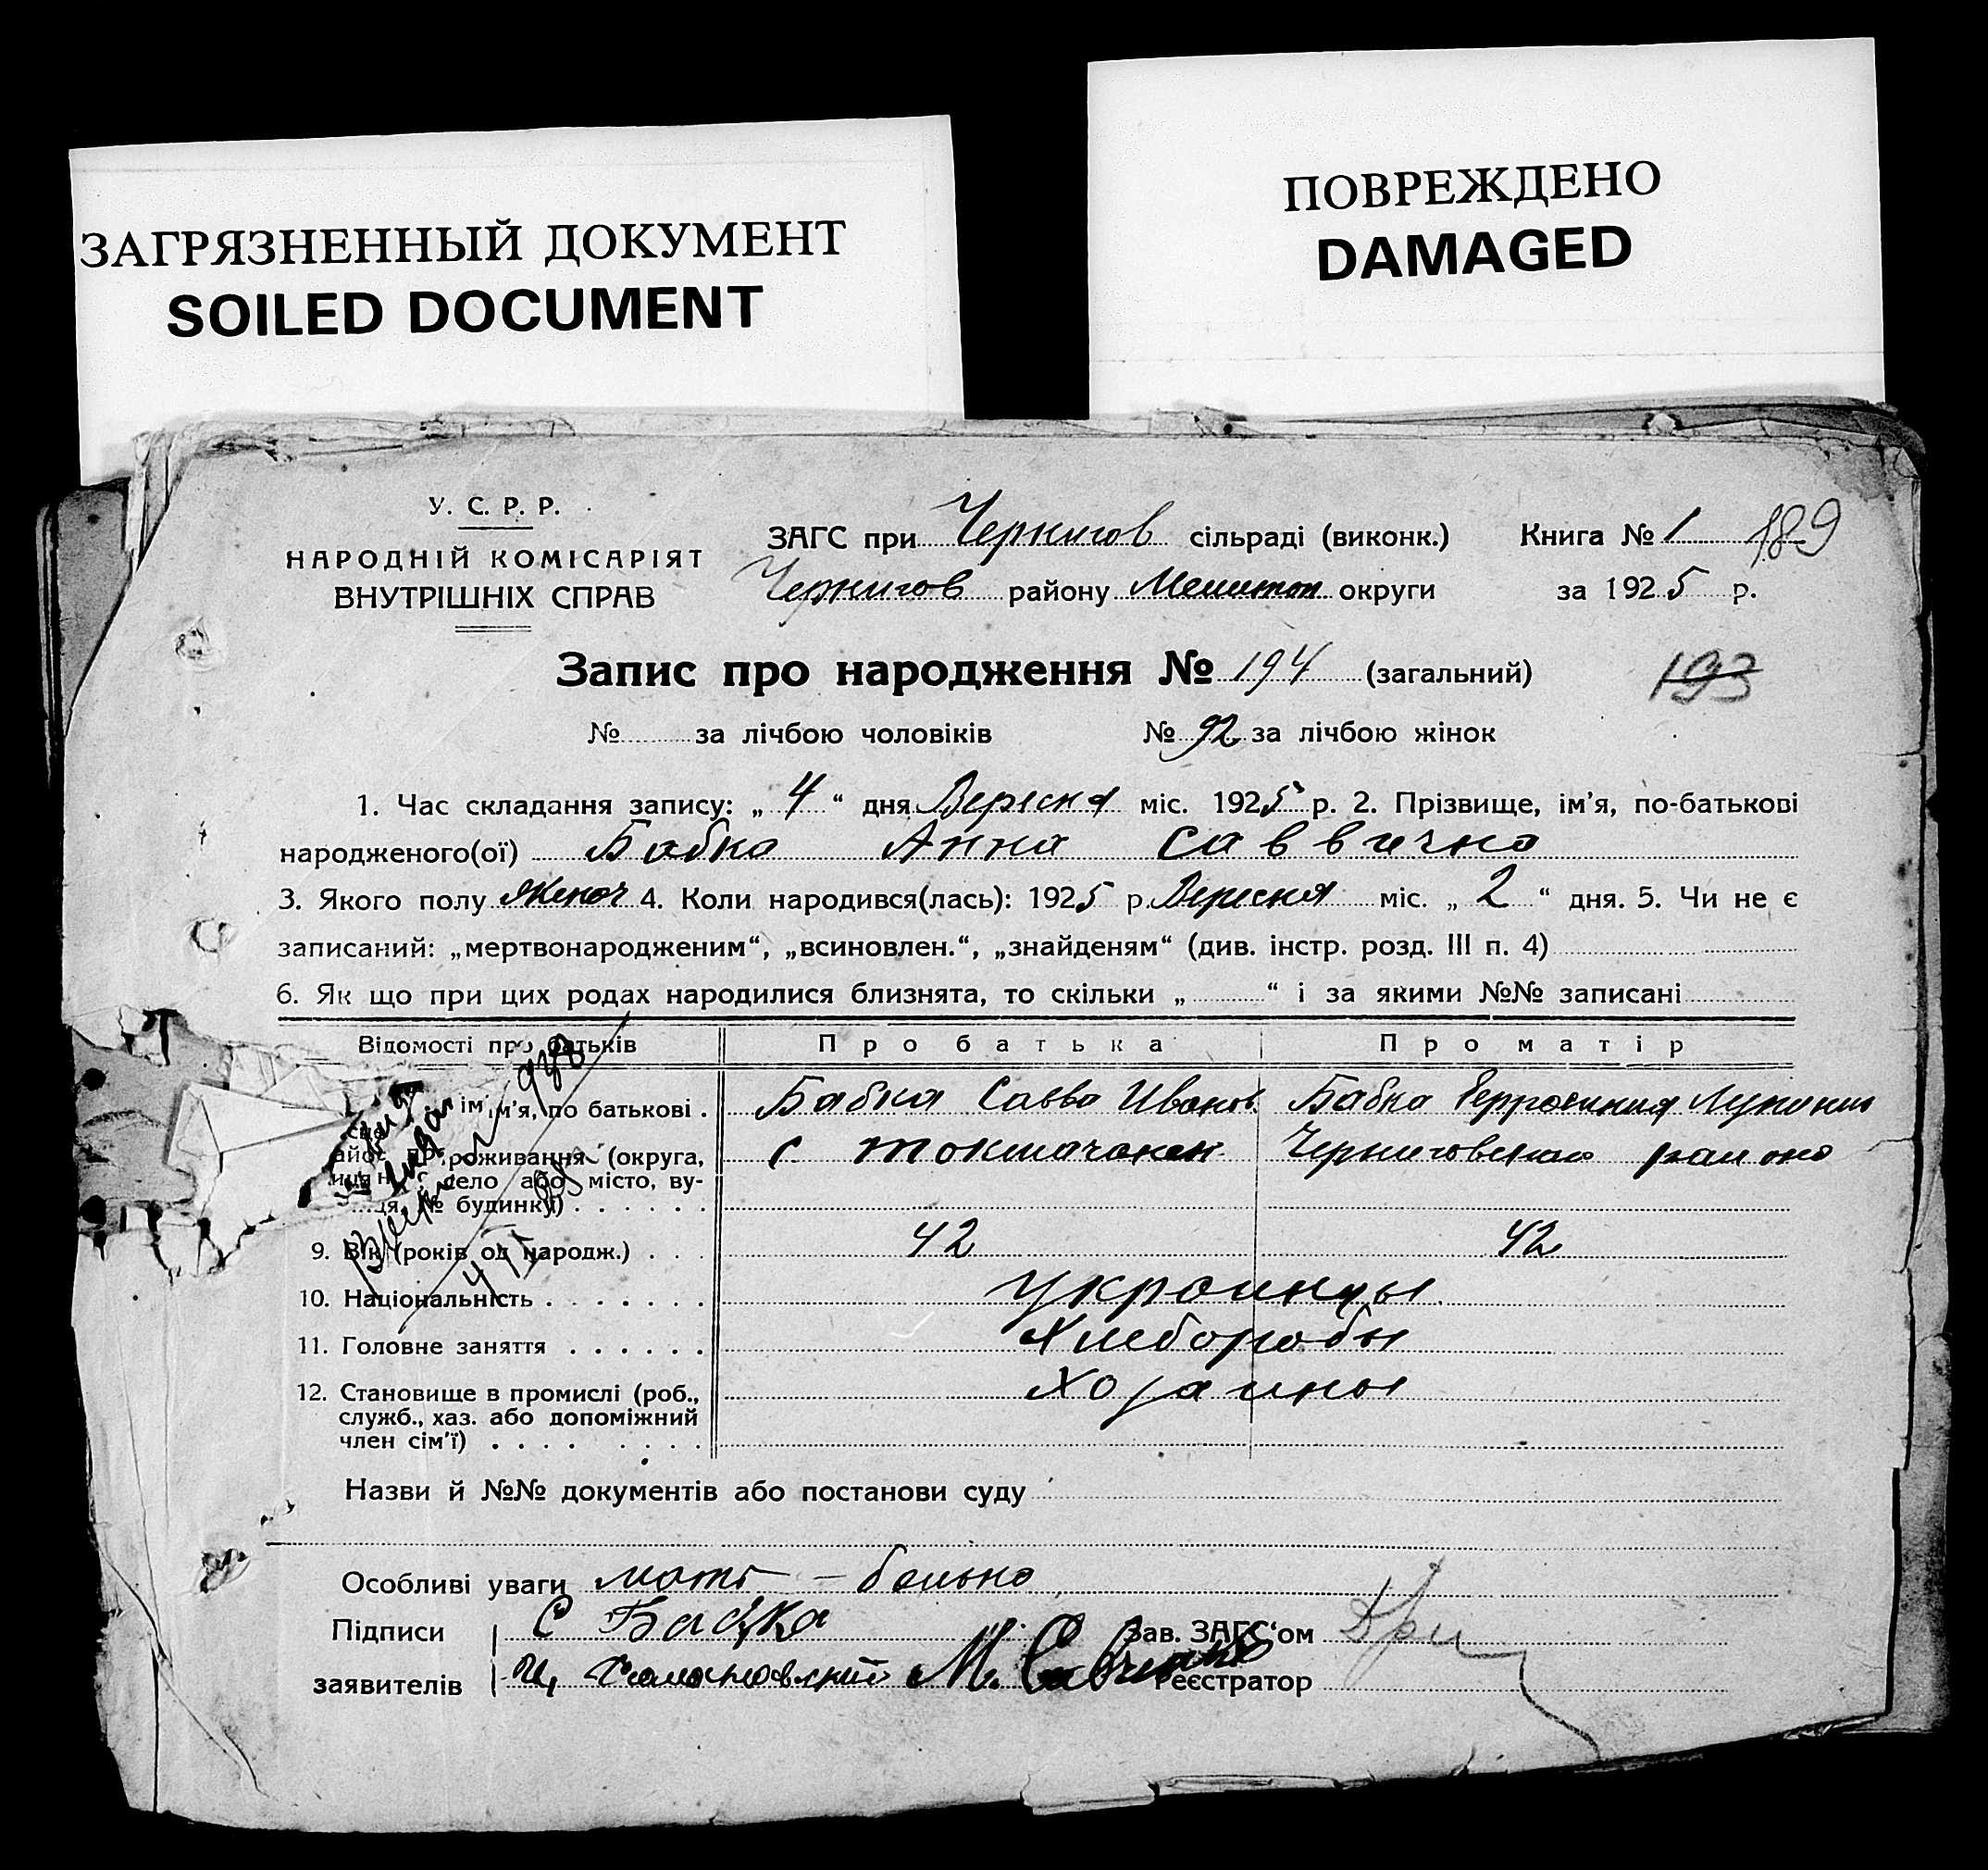 ЗАГРЯЗНЕННЫЙ ДОКУМЕНТ
SOILED DOCUMENT
ПОВРЕЖДЕНО
DAMAGED
У. С. Р. Р.
НАРОДНІЙ КОМІСАРІЯТ
ВНУТРІШНІХ СПРАВ
ЗАГС при Чернигов сільраді (виконк.) Книга № 1 189
Чернигов району Мелитоп округи за 1925 р.
Запис про народження № 194 (загальний) 193
№ за лічбою чоловіків № 92 за лічбою жінок
1. Час складання запису: „ 4 “ дня Вересня міс. 1925 р. 2. Прізвище, ім’я, по-батькові
народженого(ої) Бабка Анна Саввична
3. Якого полу женоч 4. Коли народився(лась): 1925 р. Вересня міс. „ 2 “ дня. 5. Чи не є
записаний: „мертвонародженим“, „всиновлен.“, „знайденям“ (див. інстр. розд. III п. 4)
6. Як що при цих родах народилися близнята, то скільки „ “ і за якими №№ записані
Відомості про батьків Про батька Про матір
ім’я, по батькові . Бабка Савва Иванов. Бабка
проживання (округа, с. Черниговского района
село або місто, ву-
№ будинку) . . . . . .
9. Вік (років од народж.) . . . 42 42
10. Національність . . . . . . . Украинцы
11. Головне заняття . . . . . . Хлеборобы
12. Становище в промислі (роб., Хозаины
служб., хаз. або допоміжний
член сім’ї) . . . . . . . .
Назви й №№ документів або постанови суду
Особливі уваги мать – больна
Підписи С Бабка Зав. ЗАГС‘ом
заявителів М. Савченко Реєстратор